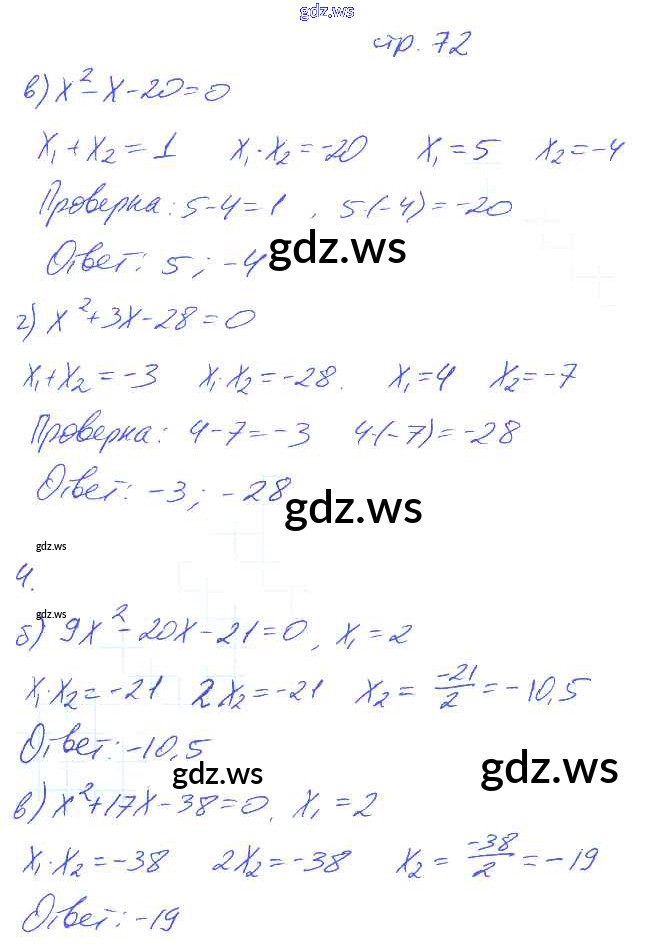 gdz.ws
стр. 72
в) x² - x - 20 = 0
x₁ + x₂ = 1 x₁ · x₂ = -20 x₁ = 5 x₂ = -4
Проверка: 5 - 4 = 1 , 5·(-4) = -20
Ответ: 5 ; -4
gdz.ws
г) x² + 3x - 28 = 0
x₁ + x₂ = -3 x₁ · x₂ = -28. x₁ = 4 x₂ = -7
Проверка: 4 - 7 = -3 4·(-7) = -28
Ответ: -3 ; -28
gdz.ws
gdz.ws
4.
gdz.ws
б) 9x² - 20x - 21 = 0 , x₁ = 2
x₁ · x₂ = -21 2x₂ = -21 x₂ = -21/2 = -10,5
Ответ: -10,5
gdz.ws gdz.ws
в) x² + 17x - 38 = 0, x₁ = 2
x₁ · x₂ = -38 2x₂ = -38 x₂ = -38/2 = -19
Ответ: -19